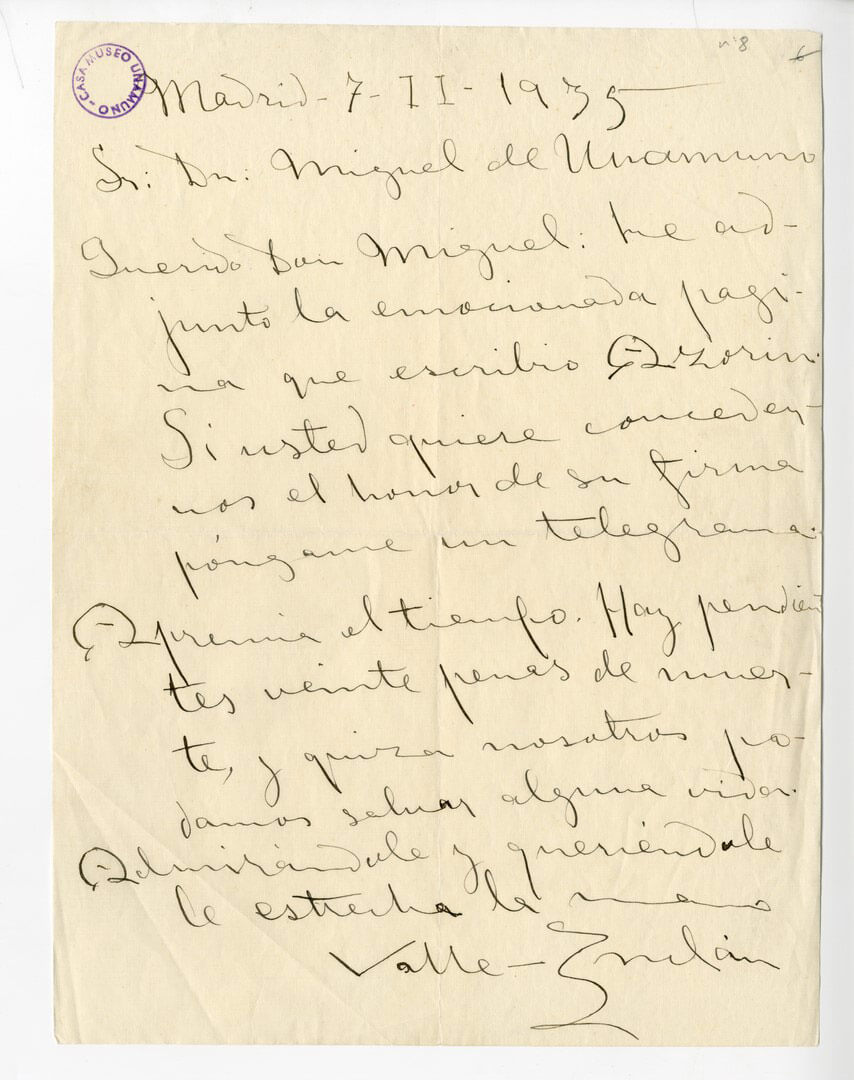 nº 8
6
CASA MUSEO UNAMUNO
Madrid - 7 - II - 1935
Sr: Dn: Miguel de Unamuno
Querido Don Miguel: Le ad-
junto la emocionada pagi-
na que escribio Azorin.
Si usted quiere conceder-
nos el honor de su firma
póngame un telegrama.
Apremia el tiempo. Hay pendien
tes veinte penas de muer-
te, y quiza nosotros po-
damos salvar alguna vida.
Admirándole y queriéndole
le estrecha la mano
Valle-Inclán